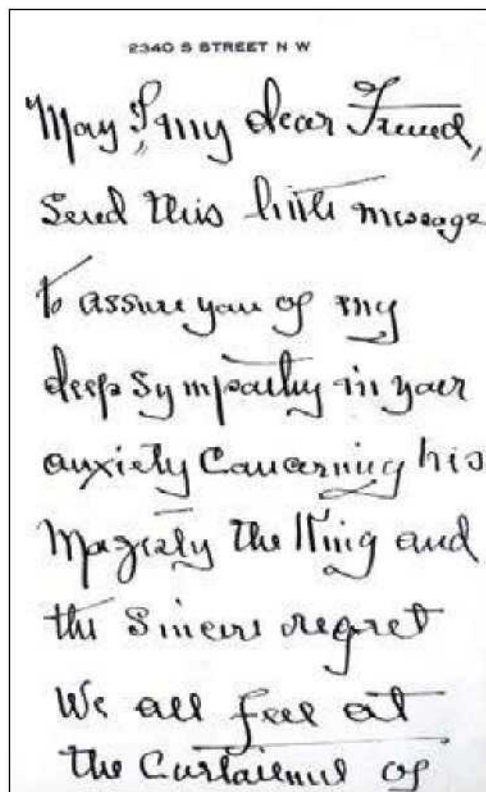 2340 S STREET N W
May I, my dear Friend,
Send this little message
to assure you of my
deep sympathy in your
anxiety Concerning his
Majesty the King and
the Sincere regret
We all feel at
the Curtailment of